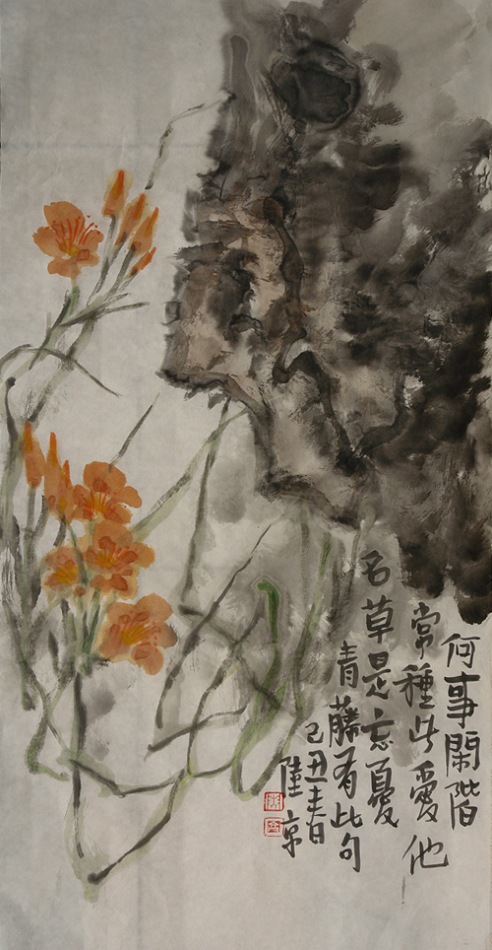 何事閑階
常種此愛他
名草是忘憂
青藤有此句
己丑春日
陸京